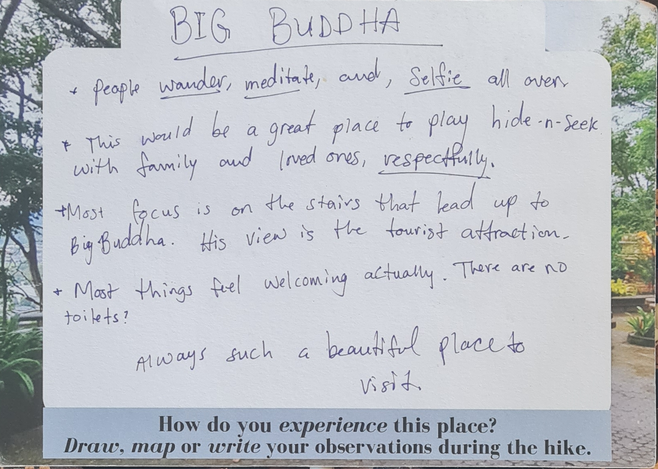 BIG BUDDHA
* People wander, meditate, and, selfie all over
* This would be a great place to play hide-n-seek
with family and loved ones, respectfully.
* Most focus is on the stairs that lead up to
Big Buddha. His view is the tourist attraction.
* Most things feel welcoming actually. There are no
toilets?
Always such a beautiful place to
visit.
How do you experience this place?
Draw, map or write your observations during the hike.